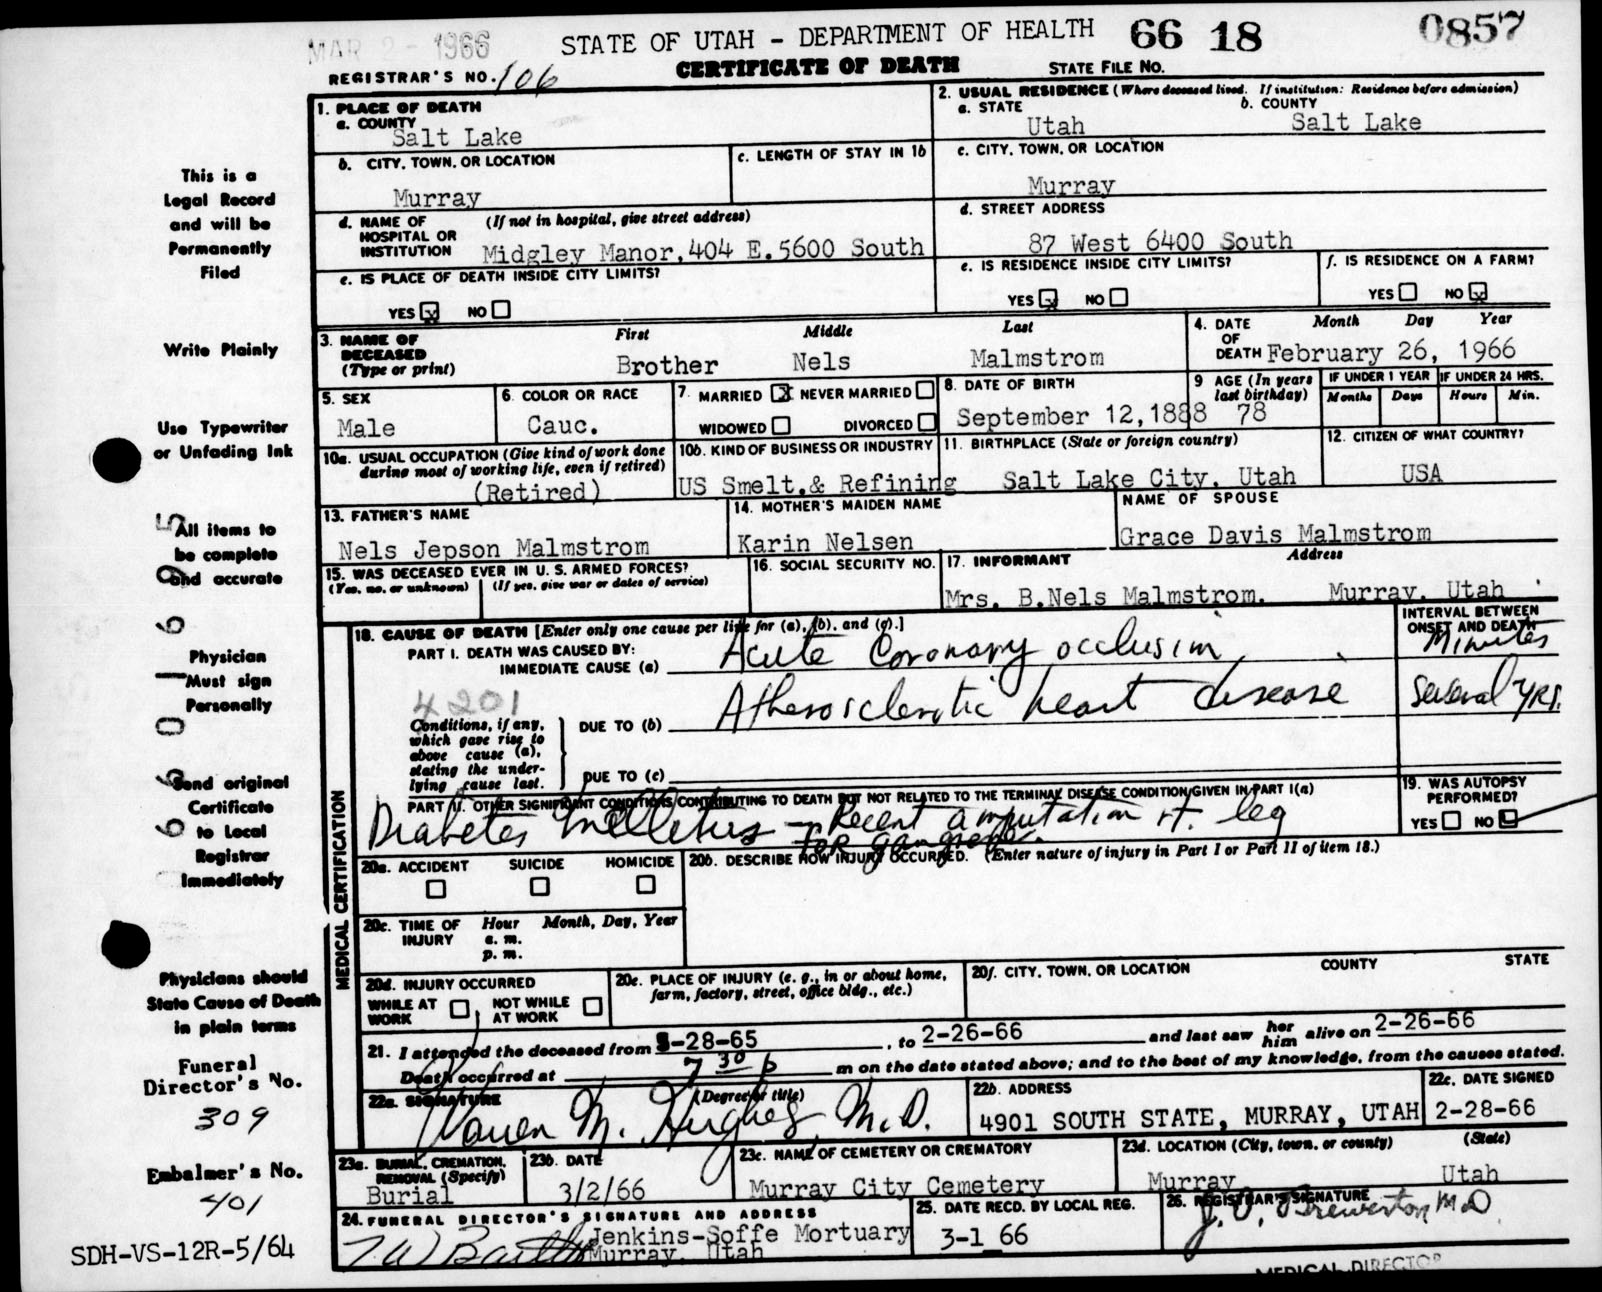 MAR 2 - 1966 STATE OF UTAH - DEPARTMENT OF HEALTH 66 18 0857
REGISTRAR'S NO. 106 CERTIFICATE OF DEATH STATE FILE NO.
1. PLACE OF DEATH
a. COUNTY
Salt Lake
2. USUAL RESIDENCE (Where deceased lived. If institution: Residence before admission)
a. STATE b. COUNTY
Utah Salt Lake
b. CITY, TOWN, OR LOCATION c. LENGTH OF STAY IN 1b
Murray
c. CITY, TOWN, OR LOCATION
Murray
d. NAME OF (If not in hospital, give street address)
HOSPITAL OR
INSTITUTION Midgley Manor, 404 E. 5600 South
d. STREET ADDRESS
87 West 6400 South
e. IS PLACE OF DEATH INSIDE CITY LIMITS?
YES x NO
e. IS RESIDENCE INSIDE CITY LIMITS?
YES x NO
f. IS RESIDENCE ON A FARM?
YES NO x
3. NAME OF First Middle Last
DECEASED
(Type or print) Brother Nels Malmstrom
4. DATE Month Day Year
OF
DEATH February 26, 1966
5. SEX
Male
6. COLOR OR RACE
Cauc.
7. MARRIED X NEVER MARRIED
WIDOWED DIVORCED
8. DATE OF BIRTH
September 12, 1888
9 AGE (In years
last birthday)
78
IF UNDER 1 YEAR IF UNDER 24 HRS.
Months Days Hours Min.
10a. USUAL OCCUPATION (Give kind of work done
during most of working life, even if retired)
(Retired)
10b. KIND OF BUSINESS OR INDUSTRY
US Smelt. & Refining
11. BIRTHPLACE (State or foreign country)
Salt Lake City, Utah
12. CITIZEN OF WHAT COUNTRY?
USA
13. FATHER'S NAME
Nels Jepson Malmstrom
14. MOTHER'S MAIDEN NAME
Karin Nelsen
NAME OF SPOUSE
Grace Davis Malmstrom
15. WAS DECEASED EVER IN U. S. ARMED FORCES?
(Yes, no, or unknown) (If yes, give war or dates of service)
16. SOCIAL SECURITY NO.
17. INFORMANT Address
Mrs. B.Nels Malmstrom. Murray, Utah
18. CAUSE OF DEATH [Enter only one cause per line for (a), (b), and (c).]
INTERVAL BETWEEN
ONSET AND DEATH
PART I. DEATH WAS CAUSED BY:
IMMEDIATE CAUSE (a) Acute Coronary occlusion Minutes
4201
Conditions, if any,
which gave rise to
above cause (a),
stating the under-
lying cause last.
DUE TO (b) Atherosclerotic heart disease Several yrs.
DUE TO (c)
PART II. OTHER SIGNIFICANT CONDITIONS CONTRIBUTING TO DEATH BUT NOT RELATED TO THE TERMINAL DISEASE CONDITION GIVEN IN PART I(a)
Diabetes mellitus - Recent amputation rt. leg
for gangrene.
19. WAS AUTOPSY
PERFORMED?
YES NO
20a. ACCIDENT SUICIDE HOMICIDE
20b. DESCRIBE HOW INJURY OCCURRED. (Enter nature of injury in Part I or Part II of item 18.)
20c. TIME OF Hour Month, Day, Year
INJURY a. m.
p. m.
20d. INJURY OCCURRED
WHILE AT NOT WHILE
WORK AT WORK
20e. PLACE OF INJURY (e. g., in or about home,
farm, factory, street, office bldg., etc.)
20f. CITY, TOWN, OR LOCATION COUNTY STATE
21. I attended the deceased from 8-28-65, to 2-26-66 and last saw her him alive on 2-26-66
Death occurred at 7 30 p m on the date stated above; and to the best of my knowledge, from the causes stated.
22a. SIGNATURE (Degree or title)
M. Hughes, M.D.
22b. ADDRESS
4901 SOUTH STATE, MURRAY, UTAH
22c. DATE SIGNED
2-28-66
23a. BURIAL, CREMATION,
REMOVAL (Specify)
Burial
23b. DATE
3/2/66
23c. NAME OF CEMETERY OR CREMATORY
Murray City Cemetery
23d. LOCATION (City, town, or county) (State)
Murray Utah
24. FUNERAL DIRECTOR'S SIGNATURE AND ADDRESS
Jenkins-Soffe Mortuary
Murray, Utah
25. DATE RECD. BY LOCAL REG.
3-1 66
26. REGISTRAR'S SIGNATURE
Brewerton M D
MEDICAL DIRECTOR
MEDICAL CERTIFICATION
This is a
Legal Record
and will be
Permanently
Filed
Write Plainly
Use Typewriter
or Unfading Ink
All items to
be complete
and accurate
Physician
Must sign
Personally
Send original
Certificate
to Local
Registrar
Immediately
Physicians should
State Cause of Death
in plain terms
Funeral
Director's No.
309
Embalmer's No.
401
SDH-VS-12R-5/64